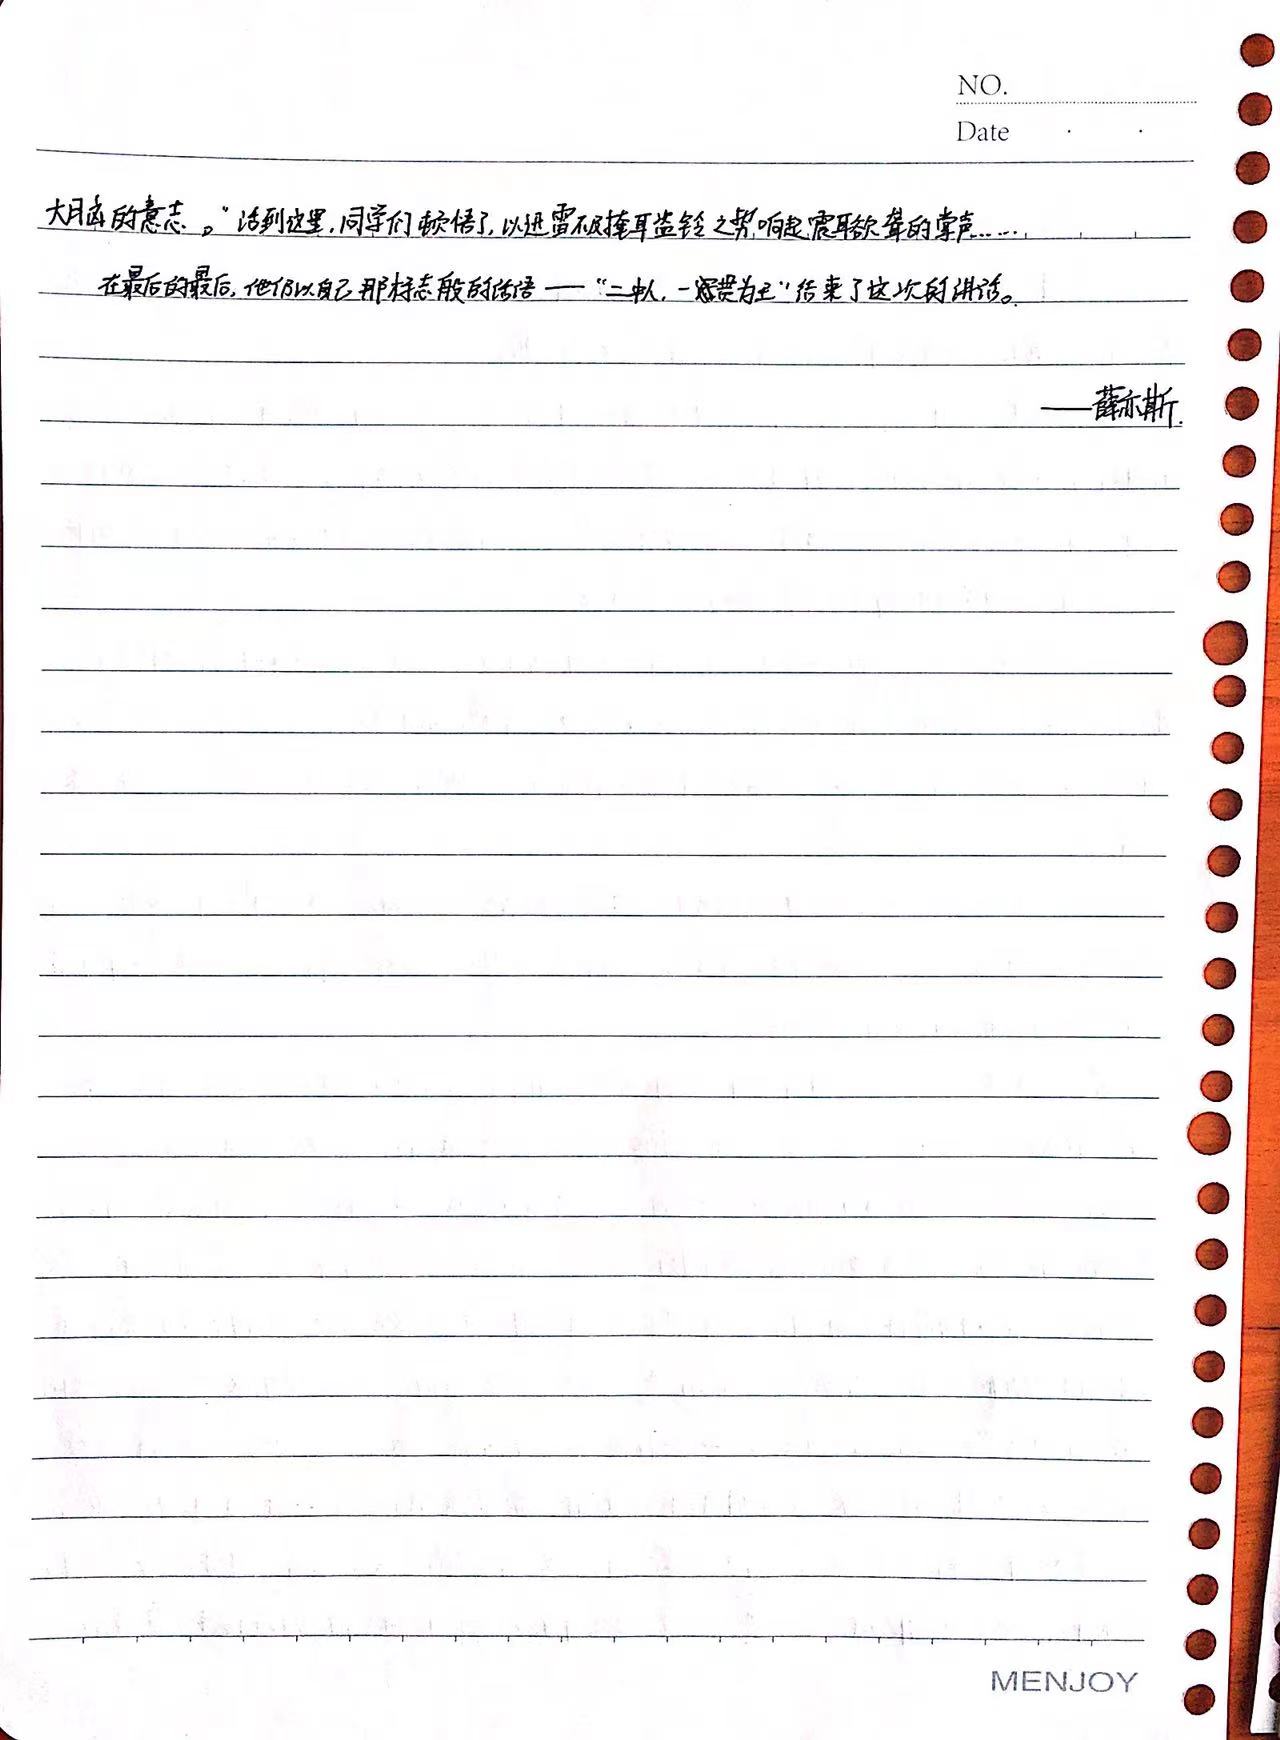 NO.
Date
大月出的意志。"话到这里,同学们顿悟了,以迅雷不及掩耳盗铃之势,响起震耳欲聋的掌声……
在最后的最后,他仍以自己那标志般的话语——"二中人,一贯为王"结束了这次的讲话。
——薛亦斯.
MENJOY